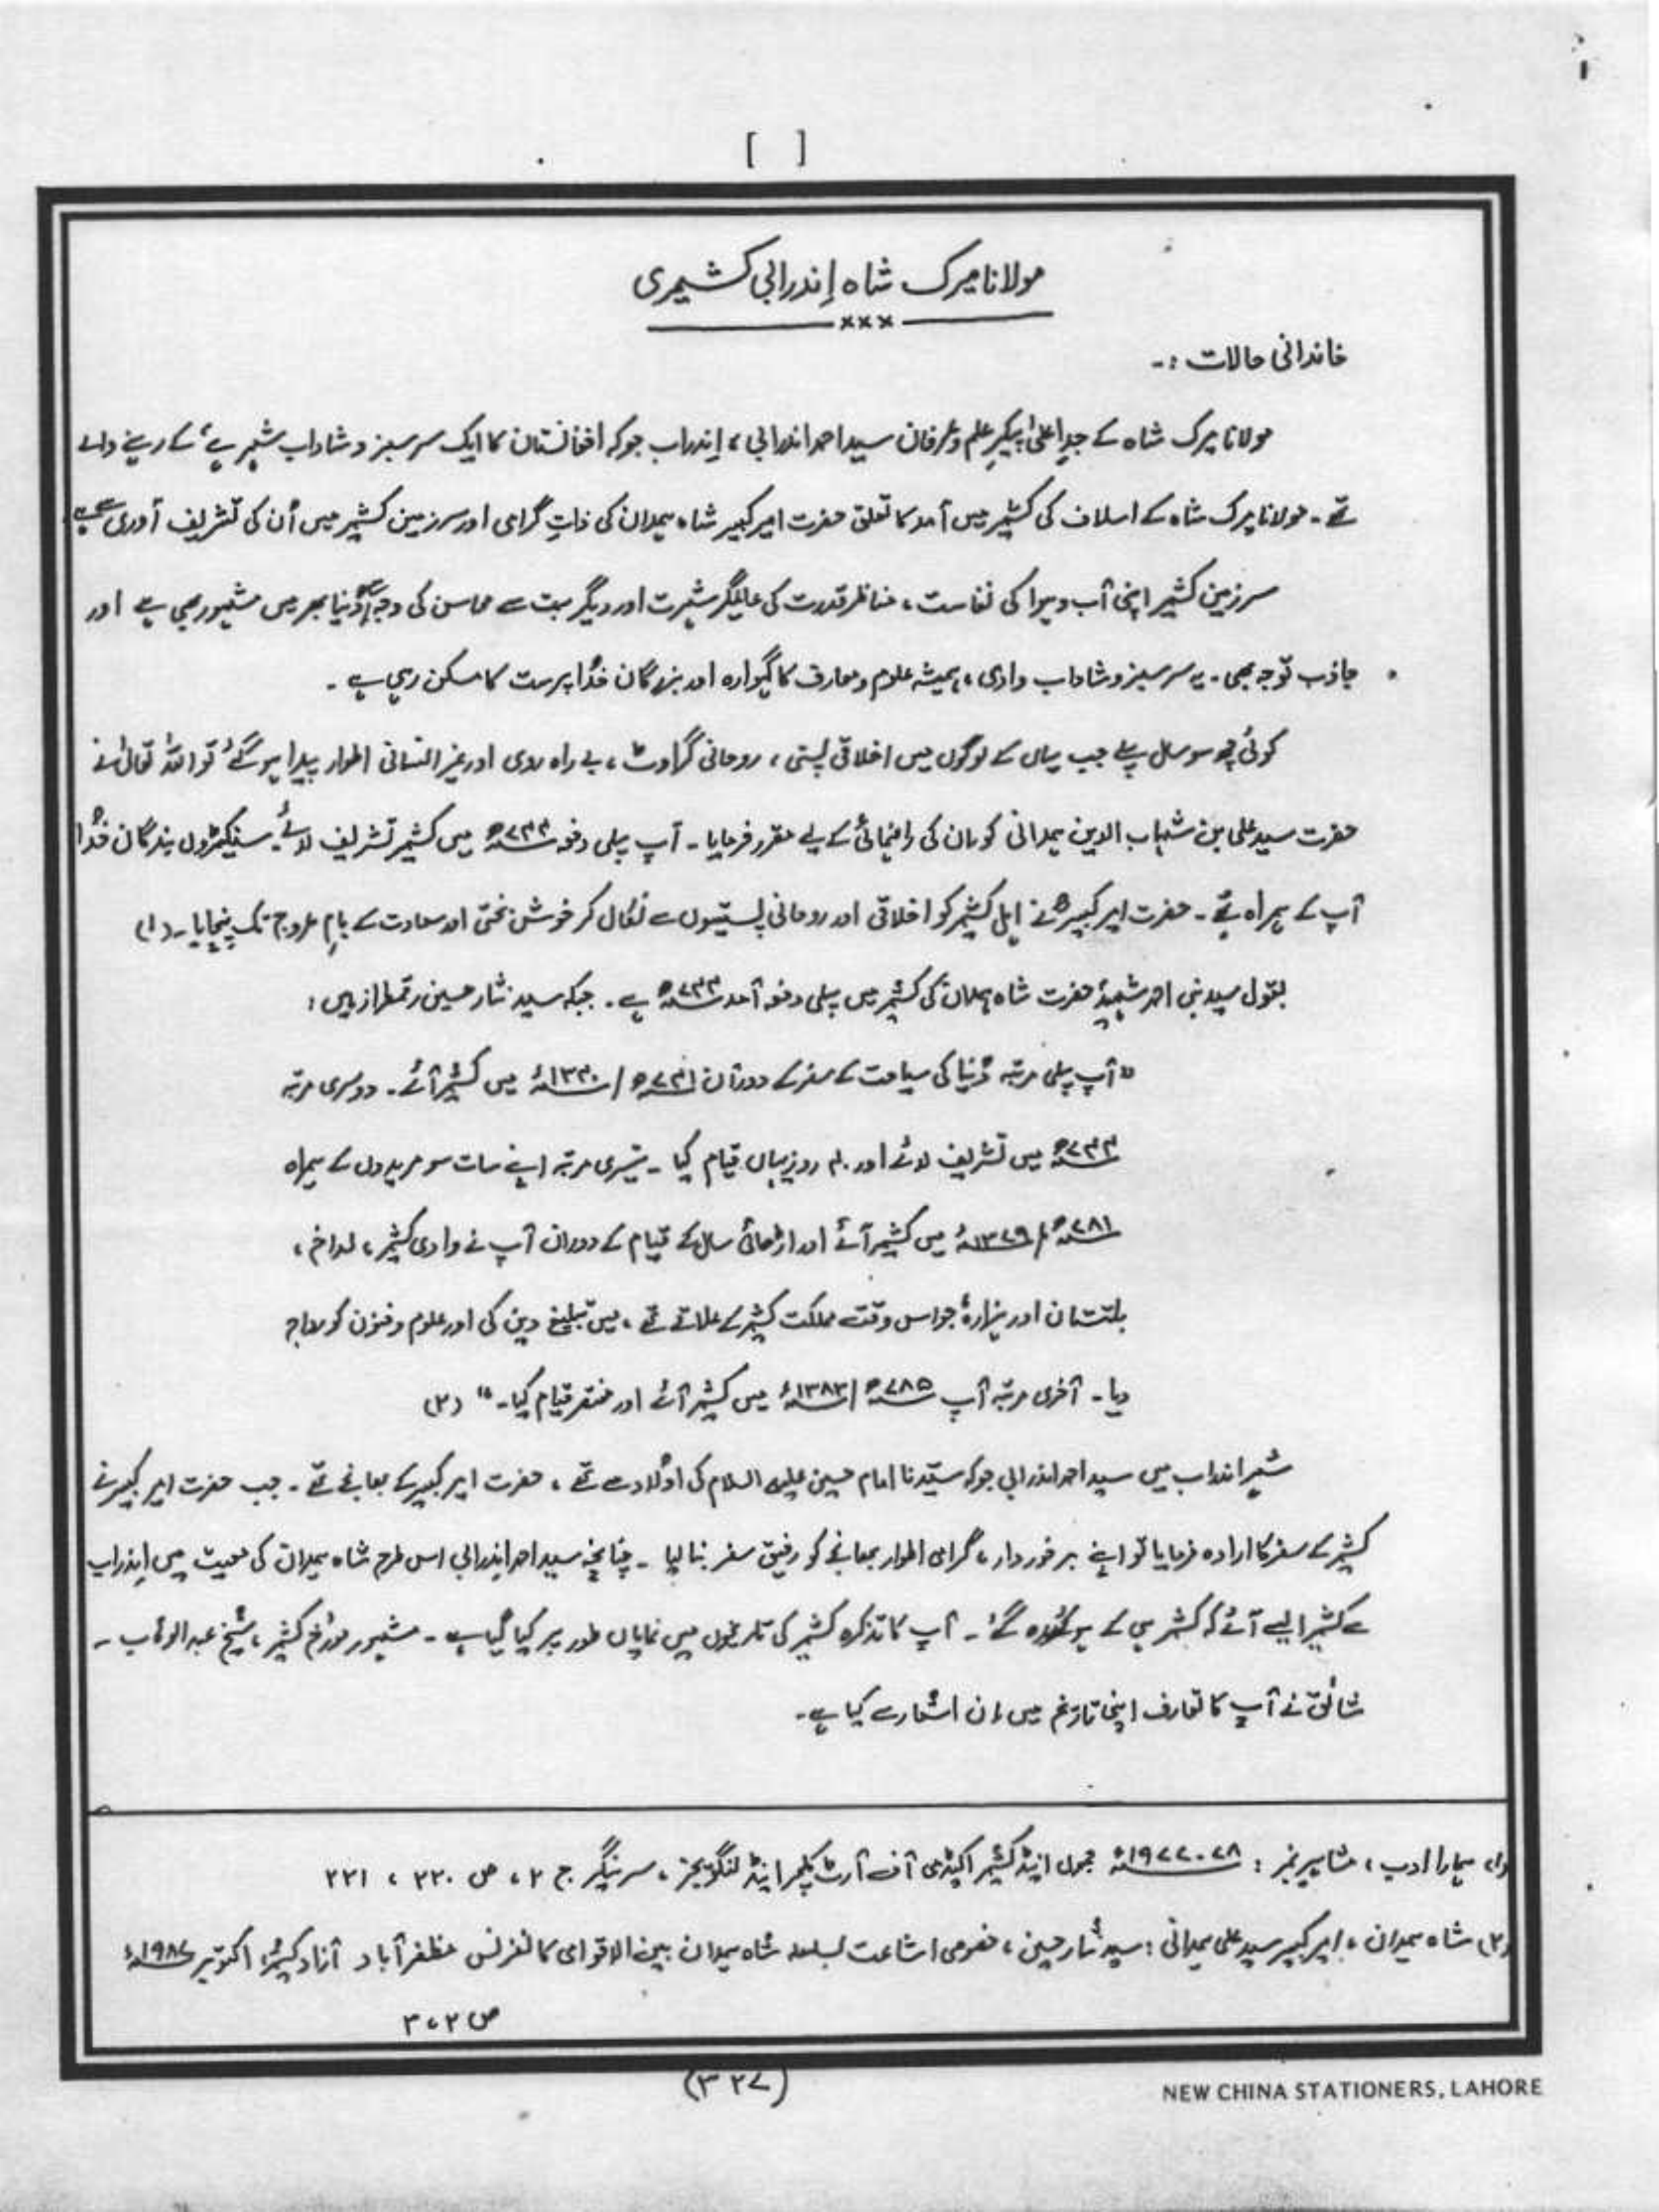 [ ]
مولانا میرک شاہ اِندرابی کشمیری
×××
خاندانی حالات :۔
مولانا میرک شاہ کے جدِ اعلیٰ پیکرِ علم و عرفان سید احمد اندرابی ، اِندراب جو کہ افغانستان کا ایک سرسبز و شاداب شہر ہے ، کے رہنے والے
تھے ۔ مولانا میرک شاہ کے اسلاف کی کشمیر میں آمد کا تعلق حضرت امیر کبیر شاہ ہمدان کی ذاتِ گرامی اور سرزمین کشمیر میں اُن کی تشریف آوری سے ہے
سرزمین کشمیر اپنی آب و ہوا کی نفاست ، مناظر قدرت کی عالمگیر شہرت اور دیگر بہت سے محاسن کی وجہ سے دُنیا بھر میں مشہور بھی ہے اور
جاذب توجہ بھی ۔ یہ سرسبز و شاداب وادی ، ہمیشہ علوم و معارف کا گہوارہ اور بزرگان خُدا پرست کا مسکن رہی ہے ۔
کوئی چھ سو سال پہلے جب یہاں کے لوگوں میں اخلاقی پستی ، روحانی گراوٹ ، بے راہ روی اور غیر انسانی اطوار پیدا ہو گئے تو اللہ تعالیٰ نے
حضرت سید علی بن شہاب الدین ہمدانی کو ان کی راہنمائی کے لیے مقرر فرمایا ۔ آپ پہلی دفعہ ۷۳۳ھ میں کشمیر تشریف لائے ۔ سینکڑوں بندگان خُدا
آپ کے ہمراہ تھے ۔ حضرت امیر کبیرؒ نے اہل کشمیر کو اخلاقی اور روحانی پستیوں سے نکال کر خوش بختی اور سعادت کے بامِ عروج تک پہنچایا ۔ (۱)
بقول سید نبی احمد شہیدؒ حضرت شاہ ہمدان کی کشمیر میں پہلی دفعہ آمد ۷۳۳ھ ہے ۔ جبکہ سید نثار حسین رقمطراز ہیں :
" آپ پہلی مرتبہ دُنیا کی سیاحت کے سفر کے دوران ۷۳۱ھ / ۱۳۳۰ء میں کشمیر آئے ۔ دوسری مرتبہ
۷۳۳ھ میں تشریف لائے اور ۴۰ روز یہاں قیام کیا ۔ تیسری مرتبہ اپنے سات سو مریدوں کے ہمراہ
۷۸۱ھ / ۱۳۷۹ء میں کشمیر آئے اور اڑھائی سال کے قیام کے دوران آپ نے وادی کشمیر ، لداخ ،
بلتستان اور ہزارہ جو اس وقت مملکت کشمیر کے علاقے تھے ، میں تبلیغ دین کی اور علوم و فنون کو رواج
دیا ۔ آخری مرتبہ آپ ۷۸۵ھ / ۱۳۸۳ء میں کشمیر آئے اور مختصر قیام کیا ۔ " (۲)
شہر اندراب میں سید احمد اندرابی جو کہ سیّدنا امام حسین علیہ السلام کی اولاد سے تھے ، حضرت امیر کبیر کے بھانجے تھے ۔ جب حضرت امیر کبیر نے
کشمیر کے سفر کا ارادہ فرمایا تو اپنے برخوردار ، گرامی اطوار بھانجے کو رفیق سفر بنا لیا ۔ چنانچہ سید احمد اِندرابی اس طرح شاہ ہمدان کی معیت میں اِندراب
سے کشمیر ایسے آئے کہ کشمیر ہی کے ہو کر رہ گئے ۔ آپ کا تذکرہ کشمیر کی تاریخوں میں نمایاں طور پر کیا گیا ہے ۔ مشہور مورٔخ کشمیر ، شیخ عبد الوہاب ۔
شائق نے آپ کا تعارف اپنی تاریخ میں ان اشعار سے کیا ہے ۔
(۱) ہمارا ادب ، مشاہیر نمبر : ۷۸۔۱۹۷۷ء جموں اینڈ کشمیر اکیڈمی آف آرٹ کلچر اینڈ لنگویجز ، سرینگر ج ۲ ، ص ۲۲۰ ، ۲۲۱
(۲) شاہ ہمدان ، امیر کبیر سید علی ہمدانی : سید نثار حسین ، خصوصی اشاعت بسلسلہ شاہ ہمدان بین الاقوامی کانفرنس مظفر آباد آزاد کشمیر اکتوبر ۱۹۸۷ء
ص ۲ ، ۳
(۳۲۷)
NEW CHINA STATIONERS, LAHORE